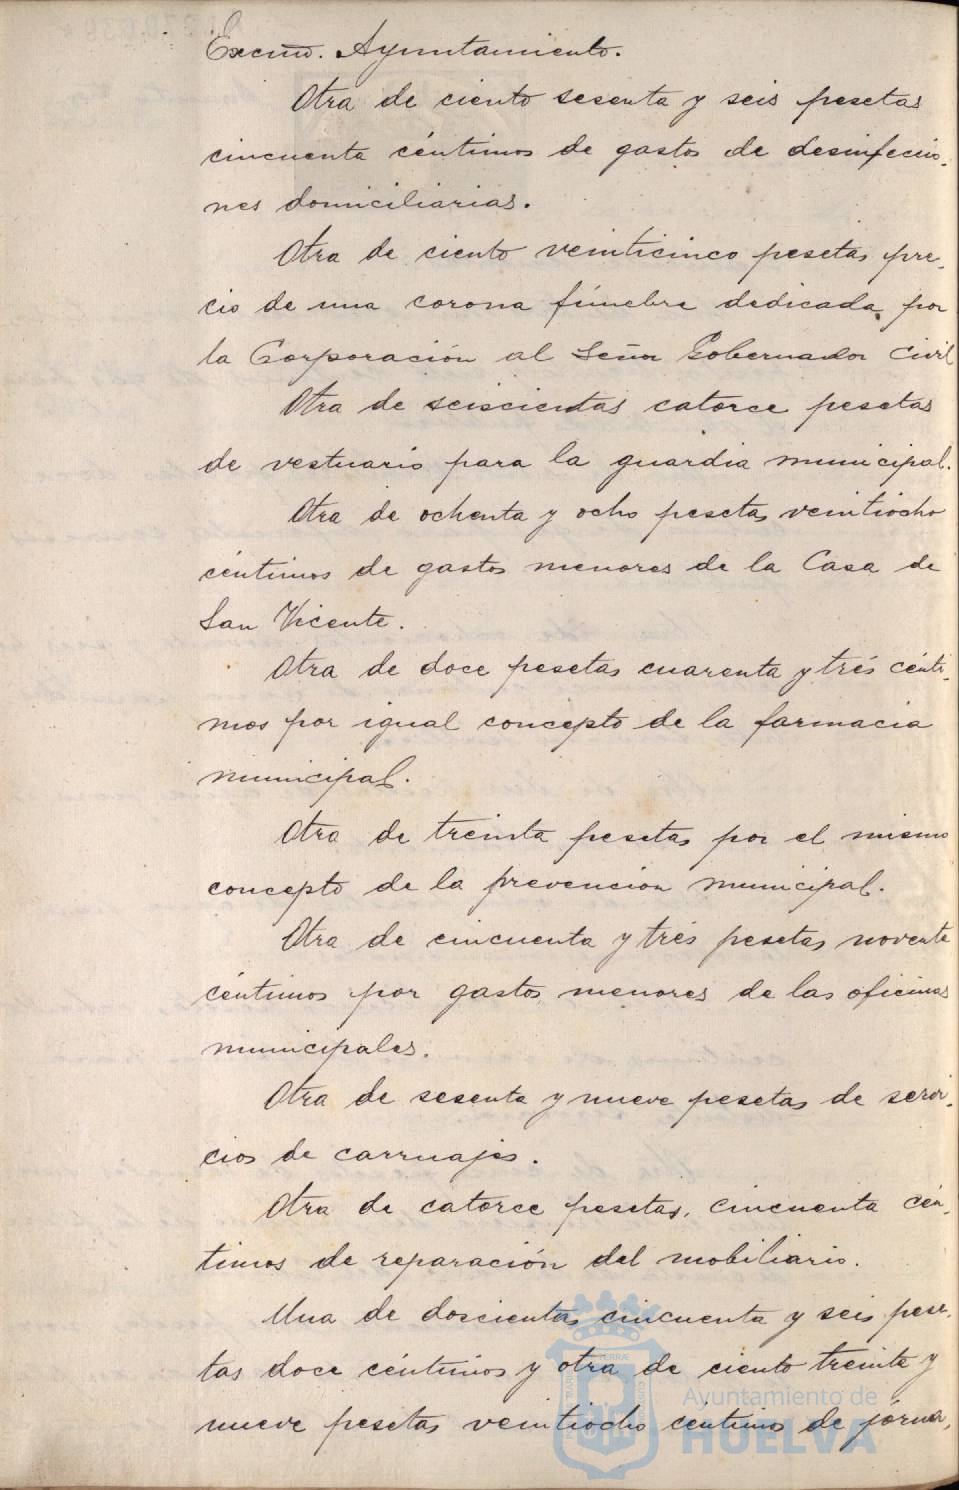 Excmo. Ayuntamiento.
Otra de ciento sesenta y seis pesetas
cincuenta céntimos de gastos de desinfeccio-
nes domiciliarias.
Otra de ciento veinticinco pesetas pre-
cio de una corona fúnebre dedicada por
la Corporación al Señor Gobernador Civil
Otra de seiscientas catorce pesetas
de vestuario para la guardia municipal.
Otra de ochenta y ocho pesetas veintiocho
céntimos de gastos menores de la Casa de
San Vicente.
Otra de doce pesetas cuarenta y trés cénti-
mos por igual concepto de la farmacia
municipal.
Otra de treinta pesetas por el mismo
concepto de la prevencion municipal.
Otra de cincuenta y trés pesetas noventa
céntimos por gastos menores de las oficinas
municipales.
Otra de sesenta y nueve pesetas de servi-
cios de carruajes.
Otra de catorce pesetas, cincuenta cén-
timos de reparación del mobiliario.
Una de doscientas cincuenta y seis pese-
tas doce céntimos y otra de ciento treinta y
nueve pesetas veintiocho céntimos de jorna-
Ayuntamiento de
HUELVA